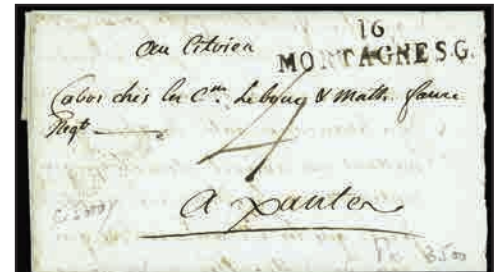 16
MONTAGNE S.G.
au Citoien
Cabos chés les C.ens Lebourg & Math. faure
Negts
4
a xantes
8500